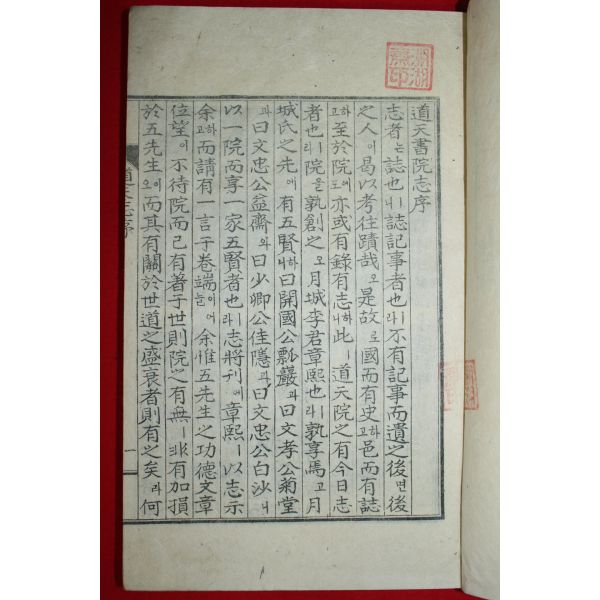 道天書院志序
志者는誌也니誌記事者也라不有記事而遺之後면後
之人이曷以考往蹟哉오是故로國而有史하고邑而有誌
하고至於院도亦或有錄有志하니此ㅣ道天院之有今日志
者也라院을孰創之오月城李君章熙也라孰享焉고月
城氏之先에有五賢하니曰開國公瓢巖과曰文孝公菊堂
과曰文忠公益齋와曰少卿公佳隱과曰文忠公白沙니
以一院而享一家五賢者也라志將刊에章熙ㅣ以志示
余하고而請有一言于卷端이어늘余惟五先生之功德文章
位望이不待院而已有著于世則院之有無ㅣ非有加損
於五先生이오而其有關於世道之盛衰者則有之矣라何
一